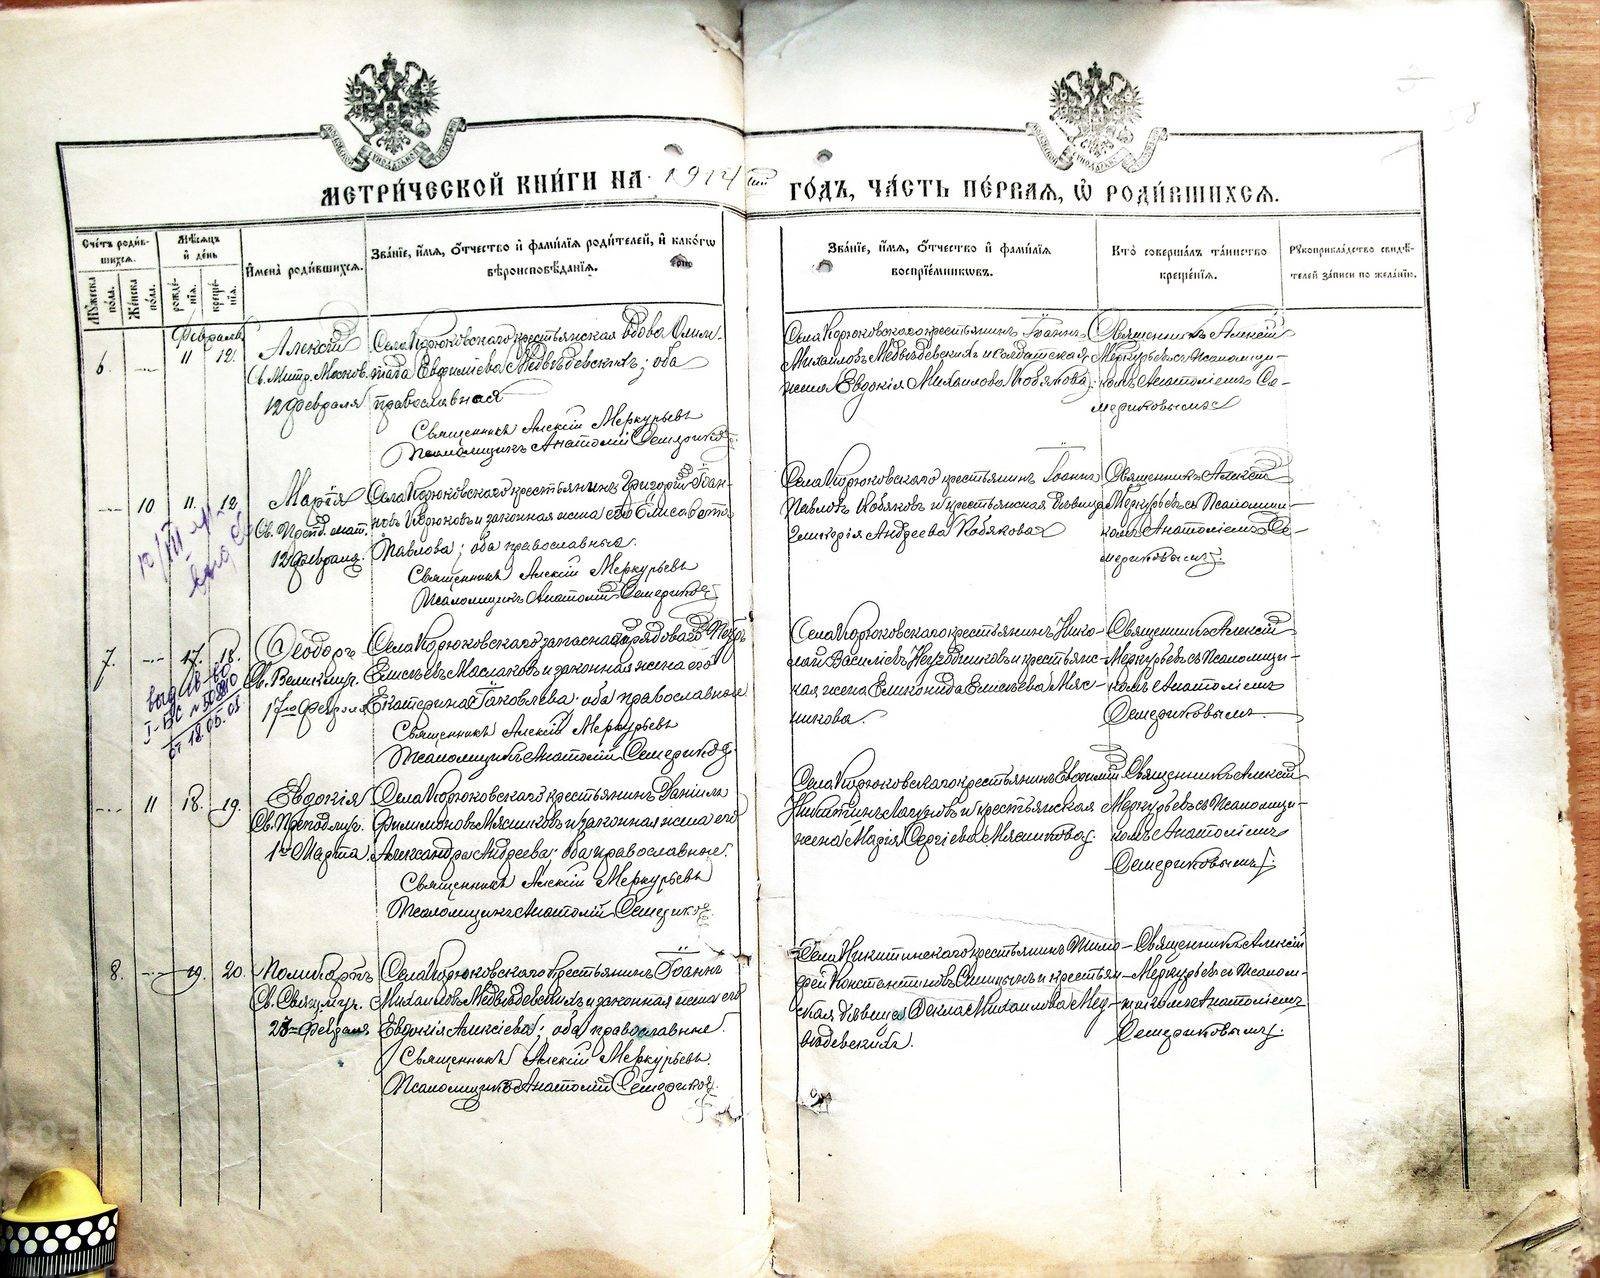 МЕТРИ́ЧЕСКОЙ КНИ́ГИ НА 1914 ый ГО́ДЪ, ЧА́СТЬ ПЕ́РВАЯ, Ѿ РОДИ́ВШИХСЯ.
Сче́тъ роди́в-
шихся.
Му́жеска по́ла.
Же́нска по́ла.
Мѣ́сяцъ и де́нь
рожде́-
нія.
креще́-
нія.
И́мена роди́вшихся.
Зва́ніе, и́мя, о́тчество и фами́лія роди́телей, и како́гѡ
вѣроисповѣ́данія.
Зва́ніе, и́мя, о́тчество и фами́лія
воспріе́мниковъ.
Кто̀ соверша́лъ та́инство
креще́нія.
Рукоприкла́дство свидѣ́-
телей за́писи по жела́нію.
Февраль
6. — 11 12.
Алексій
Св. Митр. Москов.
12 Февраля
Села Корюковскаго крестьянская вдова
Евфиміева Медвѣдевскихъ; оба
православная
Священникъ Алексій Меркурьевъ
Псаломщикъ Анатолій Семериков
Села Корюковскаго крестьянинъ Іоаннъ
Михайловъ Медвѣдевскихъ и солдатская
жена Евдокія Михайлова Кобякова;
Священникъ Алексій
Меркурьевъ съ псаломщи-
комъ Анатоліемъ Се-
мериковымъ
— 10 11. 12
Марія
Св. Препод.
12 февраля
Села Корюковскаго крестьянинъ Григорій Іоан-
новъ Корюковъ и законная жена его Елисавета
Павлова; оба православные.
Священникъ Алексій Меркурьевъ
Псаломщикъ Анатолій Семериков
Села Корюковскаго крестьянинъ Іоаннъ
Павловъ Кобяковъ и крестьянская дѣвица
Гликерія Андреева Кобякова
Священникъ Алексій
Меркурьевъ съ Псаломщи-
комъ Анатоліемъ Се-
мериковымъ
7. — 17. 18.
I-ВС № 508810
от 18.05.05
Ѳеодоръ
Св. Великмуч.
17го Февраля
Села Корюковскаго запасной рядовой Петръ
Елисѣевъ Маслаковъ и законная жена его
Екатерина Іаковлева; оба православные
Священникъ Алексій Меркурьевъ
Псаломщикъ Анатолій Семериков
Села Корюковскаго крестьянинъ Нико-
лай Василіевъ и крестьянс-
кая жена Еликонида Елисѣева Мяс-
никова.
Священникъ Алексій
Меркурьевъ съ Псаломщи-
комъ Анатоліемъ
Семериковымъ.
— 11 18. 19.
Евдокія
Св. Преподмуч.
1го Марта.
Села Корюковскаго крестьянинъ Даніилъ
Филимоновъ Мясниковъ и законная жена его
Александра Андреева; оба православные.
Священникъ Алексій Меркурьевъ
Псаломщикъ Анатолій Семериков
Села Корюковскаго крестьянинъ Евфимій
Никитинъ и крестьянская
жена Марія Сергіева Мясникова;
Священникъ Алексій
Меркурьевъ съ Псаломщи-
комъ Анатоліемъ
Семериковымъ;
8. — 19. 20.
Поликарпъ
Св. Свящмуч.
23го Февраля
Села Корюковскаго крестьянинъ Іоаннъ
Михайловъ Медвѣдевскихъ и законная жена его
Евдокія Алексіева; оба православные.
Священникъ Алексій Меркурьевъ
Псаломщикъ Анатолій Семериков
Села Никитинскаго крестьянинъ Тимо-
фей Константиновъ Синицынъ и крестьян-
ская дѣвица Ѳекла Михайлова Мед-
вѣдевскихъ.
Священникъ Алексій
Меркурьевъ съ псалом-
щикомъ Анатоліемъ
Семериковымъ;